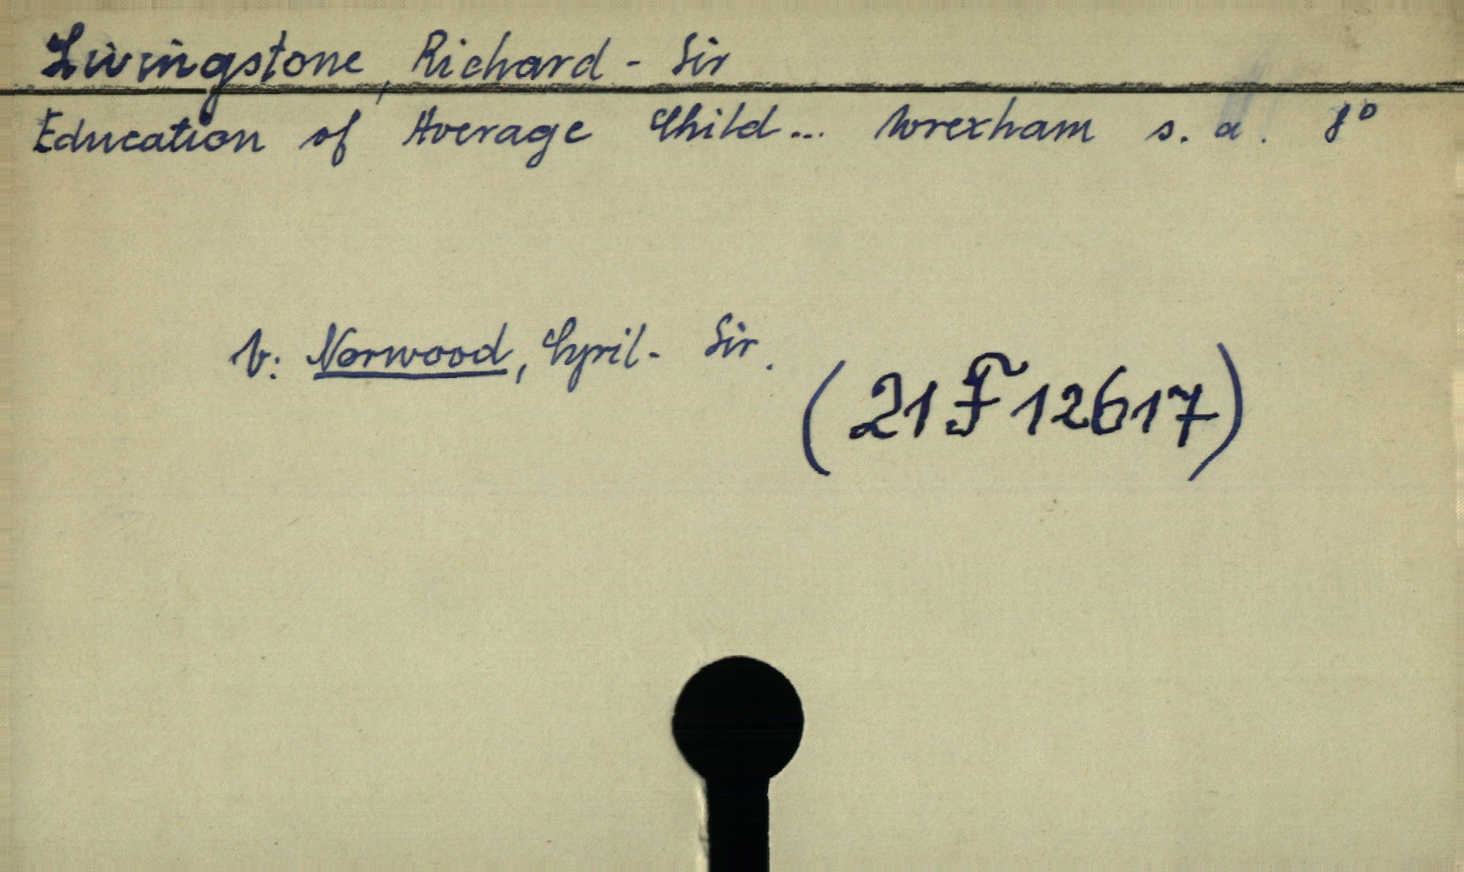 Livingstone, Richard - Sir
Education of Average Child... Wrexham s. a. 8°
v: Norwood, Cyril - Sir.
(21 F 12617)